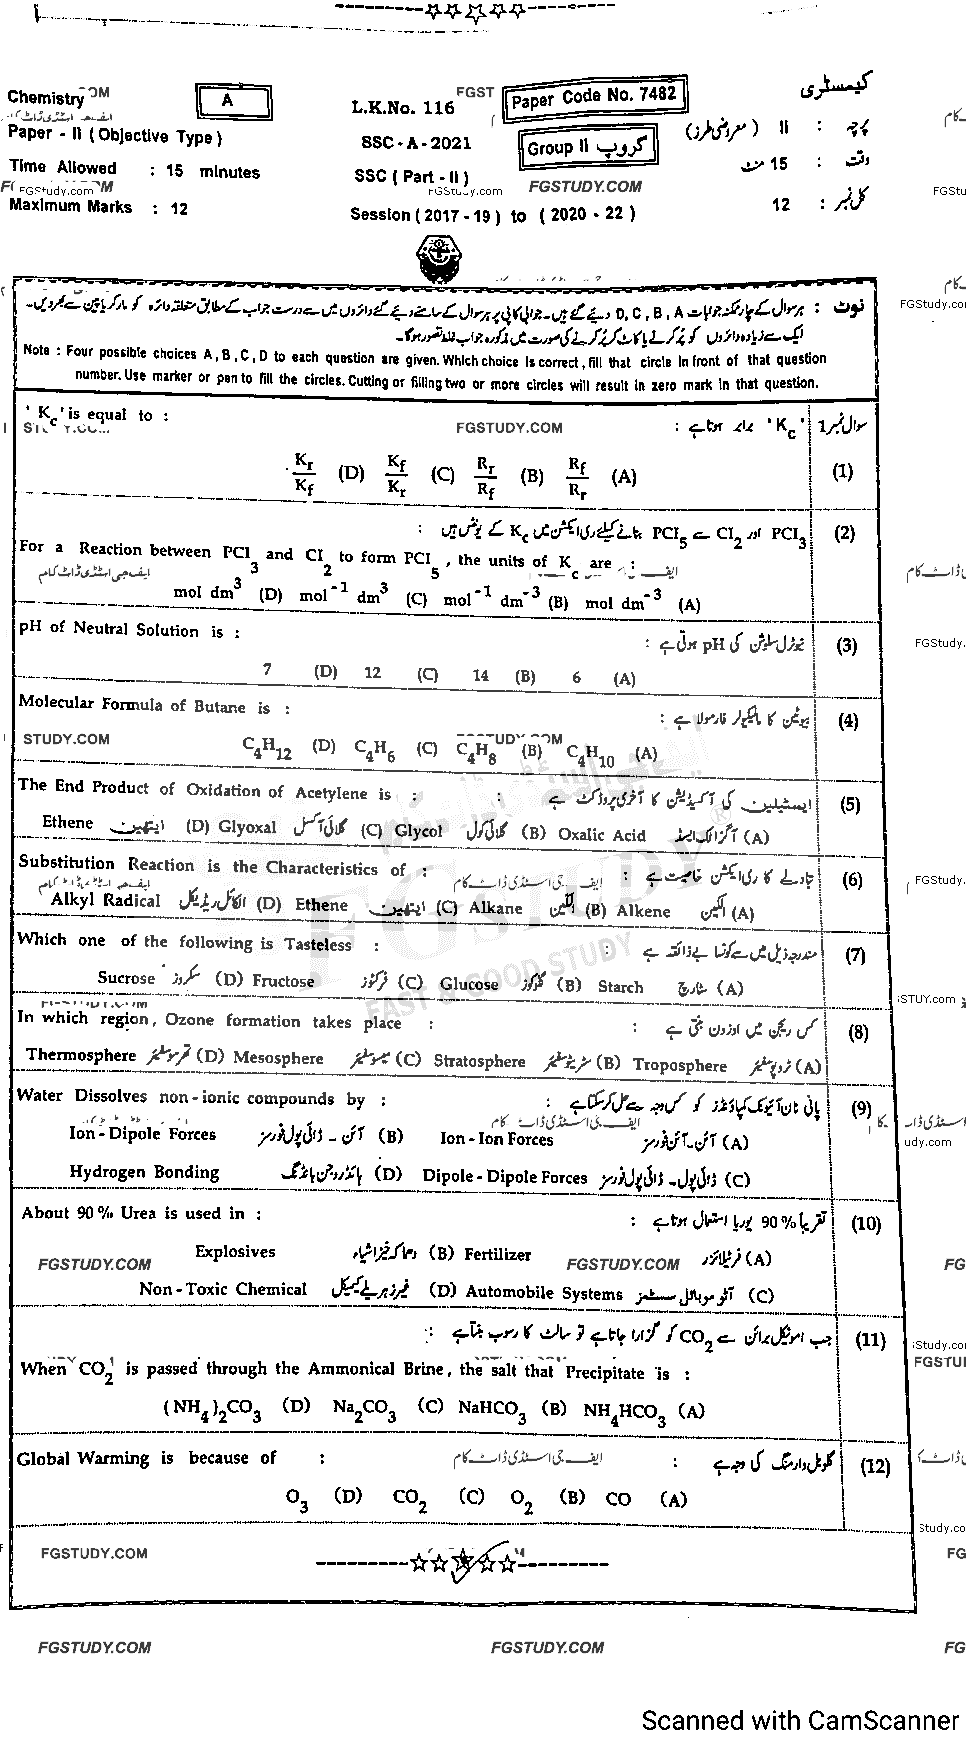 Chemistry
A
L.K.No. 116
FGST
Paper Code No. 7482
کیمسٹری
Paper - II ( Objective Type )
SSC - A - 2021
Group II گروپ
پرچہ : II ( معروضی طرز )
Time Allowed : 15 minutes
SSC ( Part - II )
FGSTUDY.COM
وقت : 15 منٹ
FGStudy.com
FGStudy.com
Maximum Marks : 12
Session ( 2017 - 19 ) to ( 2020 - 22 )
کل نمبر : 12
نوٹ : ہر سوال کے چار ممکنہ جوابات D , C , B , A دیئے گئے ہیں۔ جوابی کاپی پر ہر سوال کے سامنے دیئے گئے دائروں میں سے درست جواب کے مطابق متعلقہ دائرہ کو مارکر یا پین سے بھر دیں۔
ایک سے زیادہ دائروں کو پُر کرنے یا کاٹ کر پُر کرنے کی صورت میں مذکورہ جواب غلط تصور ہوگا۔
Note : Four possible choices A , B , C , D to each question are given. Which choice is correct , fill that circle in front of that question
number. Use marker or pen to fill the circles. Cutting or filling two or more circles will result in zero mark in that question.
' Kc' is equal to :
FGSTUDY.COM
' Kc ' برابر ہوتا ہے :
سوال نمبر 1
Kr/Kf (D) Kf/Kr (C) Rr/Rf (B) Rf/Rr (A) (1)
PCl3 اور Cl2 سے PCl5 بنانے کیلئے ری ایکشن میں Kc کے یونٹس ہیں : (2)
For a Reaction between PCl3 and Cl2 to form PCl5 , the units of Kc are :
ایف جی اسٹڈی ڈاٹ کام
mol dm³ (D) mol⁻¹ dm³ (C) mol⁻¹ dm⁻³ (B) mol dm⁻³ (A)
pH of Neutral Solution is :
نیوٹرل سلوشن کی pH ہوتی ہے : (3)
7 (D) 12 (C) 14 (B) 6 (A)
Molecular Formula of Butane is :
بیوٹین کا مالیکیولر فارمولا ہے : (4)
STUDY.COM
C4H12 (D) C4H6 (C) C4H8 (B) C4H10 (A)
The End Product of Oxidation of Acetylene is :
ایسیٹیلین کی آکسیڈیشن کا آخری پروڈکٹ ہے : (5)
Ethene ایتھین (D) Glyoxal گلائی آکسل (C) Glycol گلائی کول (B) Oxalic Acid آگزالک ایسڈ (A)
Substitution Reaction is the Characteristics of :
ایف جی اسٹڈی ڈاٹ کام
تبادلے کا ری ایکشن خاصیت ہے : (6)
Alkyl Radical الکائل ریڈیکل (D) Ethene ایتھین (C) Alkane الکین (B) Alkene الکین (A)
Which one of the following is Tasteless :
مندرجہ ذیل میں سے کونسا بے ذائقہ ہے : (7)
Sucrose سکروز (D) Fructose فرکٹوز (C) Glucose گلوکوز (B) Starch سٹارچ (A)
FGSTUDY
FAST & GOOD STUDY
In which region , Ozone formation takes place :
کس ریجن میں اوزون بنتی ہے : (8)
Thermosphere تھرموسفیئر (D) Mesosphere میسوسفیئر (C) Stratosphere سٹریٹوسفیئر (B) Troposphere ٹروپوسفیئر (A)
Water Dissolves non - ionic compounds by :
پانی نان آئیونک کمپاؤنڈز کو کس وجہ سے حل کرسکتا ہے : (9)
ایف جی اسٹڈی ڈاٹ کام
Ion - Dipole Forces آئن - ڈائی پول فورسز (B) Ion - Ion Forces آئن - آئن فورسز (A)
Hydrogen Bonding ہائڈروجن بانڈنگ (D) Dipole - Dipole Forces ڈائی پول - ڈائی پول فورسز (C)
About 90 % Urea is used in :
تقریباً 90% یوریا استعمال ہوتا ہے : (10)
Explosives دھماکہ خیز اشیاء (B) Fertilizer فرٹیلائزر (A)
FGSTUDY.COM
FGSTUDY.COM
FG
Non - Toxic Chemical غیر زہریلے کیمیکل (D) Automobile Systems آٹو موبائل سسٹمز (C)
جب امونیکل برائن سے CO2 کو گزارا جاتا ہے تو سالٹ کا رسوب بنتا ہے : (11)
When CO2 is passed through the Ammonical Brine , the salt that Precipitate is :
(NH4)2CO3 (D) Na2CO3 (C) NaHCO3 (B) NH4HCO3 (A)
Global Warming is because of :
ایف جی اسٹڈی ڈاٹ کام
گلوبل وارمنگ کی وجہ ہے : (12)
O3 (D) CO2 (C) O2 (B) CO (A)
FGSTUDY.COM
FG
FGSTUDY.COM
FGSTUDY.COM
FG
Scanned with CamScanner